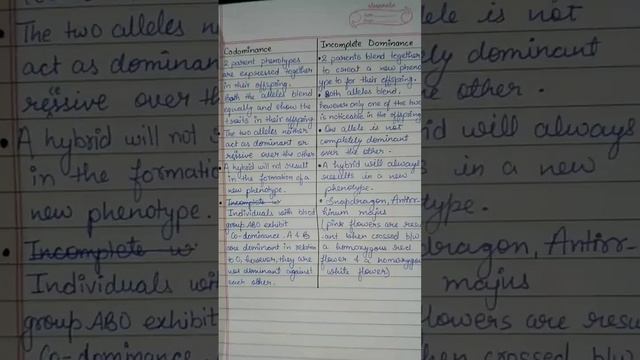 The two alleles n
act as dominan
ressive over th
A hybrid will not
in the formatio
new phenotype.
Incomplete w
Individuals wit
group ABO exhibit
Co-dominance
Codominance
2 parent phenotypes
are expressed together
in their offspring.
Both the alleles blend
equally and show the
traits in their offspring
The two alleles neither
act as dominant or
ressive over the other
A hybrid will not result
in the formation of a
new phenotype.
Incomplete w
Individuals with blood
group ABO exhibit
Co-dominance. A & B
are dominant in relation
to O, however, they are
not dominant against
each other.
Incomplete Dominance
2 parents blend together
to creat a new pheno
type to for their offspring.
Both alleles blend,
however only one of the two
is noticeable in the offspring
One allele is not
completely dominant
over the other.
A hybrid will always
results in a new
phenotype.
Snapdragon, Antirr-
hinum majus
(pink flowers are resu
and when crossed b/w
a homozygous red
flower & a homozygous
white flower)
llele is not
tely dominant
e other.
rid will always
s in a new
type.
dragon, Antirr-
majus
lowers are resu
en crossed b/w